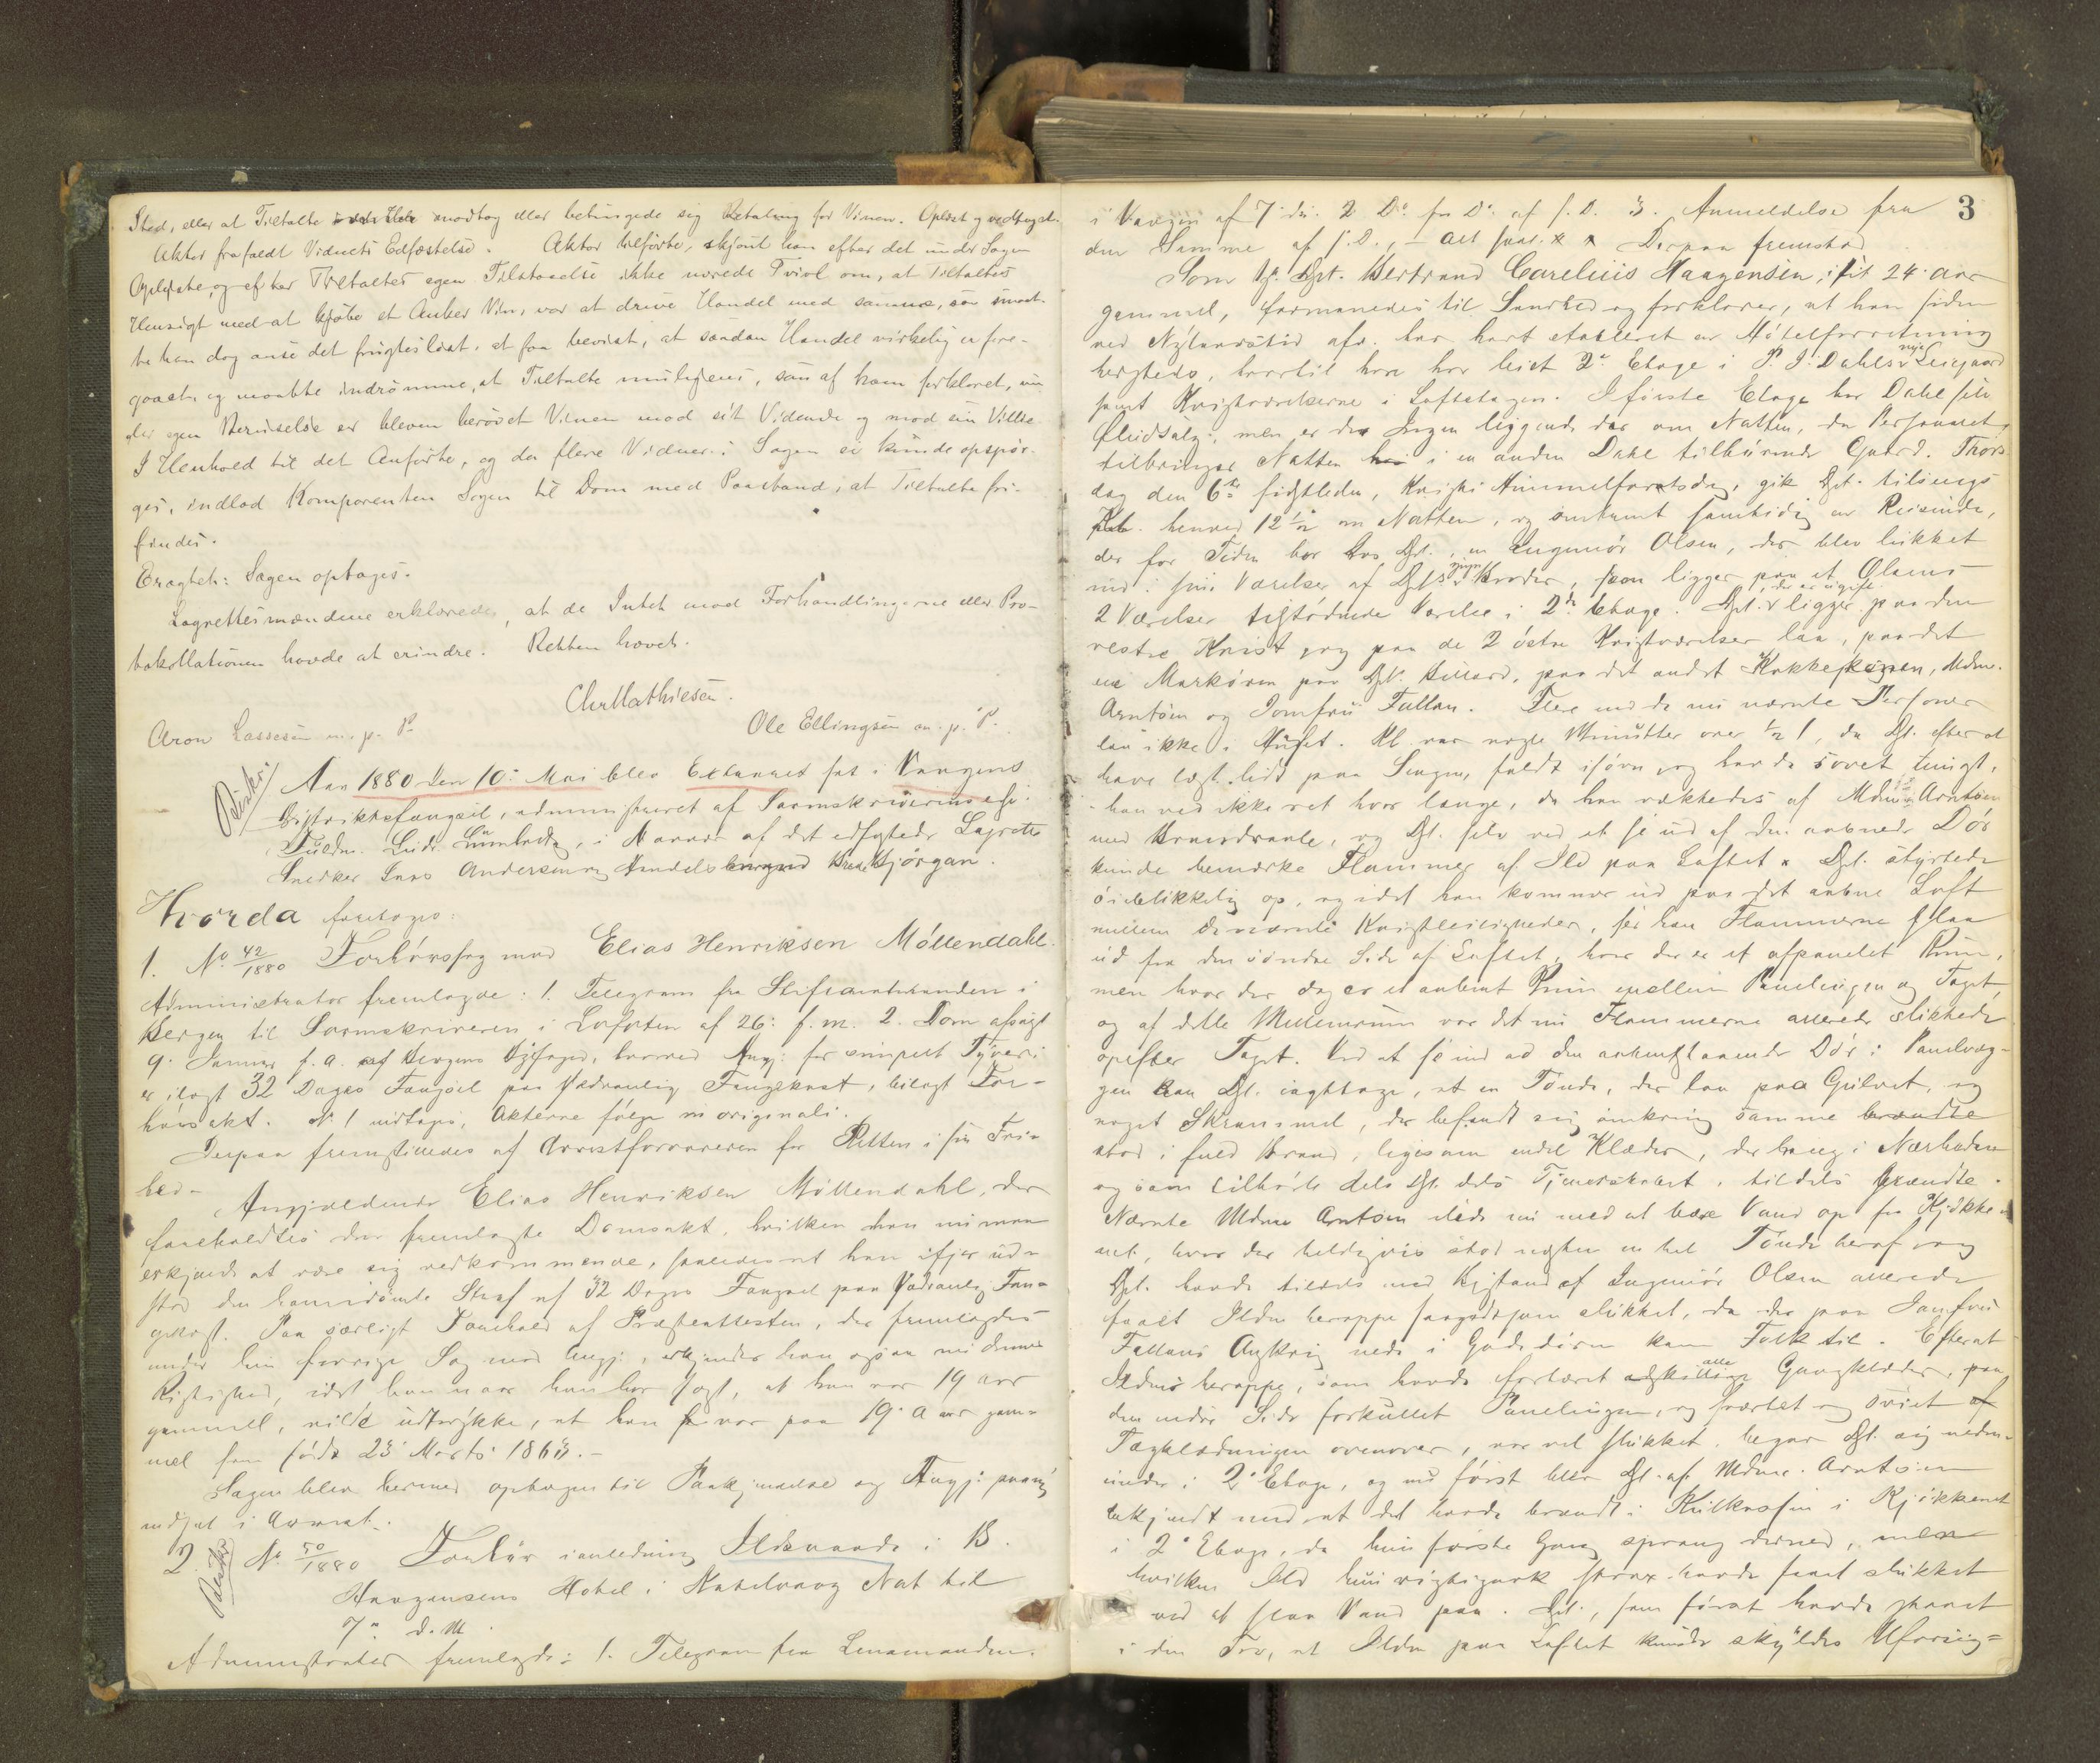 Sted, eller at Tiltalte modtog eller betingede sig Betaling for Vinen. Oplæst og vedtaget.
Aktor frafaldt Vidnets Edfæstelse. Aktor tilførte, skjønt han efter det under Sagen
Oplyste, og efter Tiltaltes egen Tilstaaelse ikke nærede Tvivl om, at Tiltaltes
Hensigt med at kjøbe et Anker Vin, var at drive Handel med samme, saa maat-
te han dog anse det frugtesløst, at faa bevist, at saadan Handel virkelig er fore-
gaaet, og maatte indrømme, at Tiltalte muligens, som af ham forklaret, un-
der egen Beruselse er bleven berøvet Vinen mod sit Vidende og mod sin Villie.
I Henhold til det Anførte, og da flere Vidner i Sagen ei kunde opspør-
ges, indlod Komparenten Sagen til Dom med Paastand, at Tiltalte fri-
findes.
Eragtet: Sagen optages.
Lagrettesmændene erklærede, at de Intet mod Forhandlingerne eller Pro-
tokollationen havde at erindre. Retten hævet.
Chr Mathiesen.
Aron Lassesen m. p. P. Ole Ellingsen m. p. P.
Aar 1880 den 10: Mai blev Extraret sat i Vaagens
Distriktsfængsel, administreret af Sorenskriverens
Fuldm. i Nærvær af det edfæstede Lagrette
Snedker Jens Andersen og Handelsbetjent Bjørgan.
Hvorda foretoges:
1. No 42/1880 Forhørssag mod Elias Henriksen Möllendahl.
Administrator fremlagde: 1. Telegram fra Stiftamtmanden i
Bergen til Sorenskriveren i Lofoten af 26: f. m. 2. Dom afsagt
9. Januar f. a. af Bergens Byfoged, hvorved Angj: for simpelt Tyveri
er ilagt 32 Dages Fængsel paa sædvanlig Fangekost, bilagt For-
hørsakt. N. 1 indtages, Akterne følge in originali.
Derpaa fremstilledes af Arrestforvareren for Retten i sin Fri-
hed -
Angjældende Elias Henriksen Möllendahl, der
foreholdtes den fremlagte Domsakt, hvilken han nu maa
erkjende at være sig vedkommende, saaledes at han ifjor ud-
stod den ham idømte Straf af 32 Dages Fængsel paa sædvanlig Fan-
gekost. Paa særligt Forehold af Præsteattesten, der fremlagdes
under hin forrige Sag mod Angj:, erkjender han ogsaa nu dennes
Rigtighed, idet han naar han har sagt, at han var 19 Aar
gammel, vilde udtrykke, at han var paa 19. Aar gam-
mel som født 23 Marts 1863. -
Sagen blev hermed optagen til Paakjendelse og Angj: paany
indsat i Arrest.
2 No 50/1880 Forhør i anledning Ildsvaade i B.
Haagensens Hotel i Kabelvaag Nat til
7. d. M.
Administrator fremlagde: 1. Telegram fra Lensmanden
3
i Vaagen af 7. ds. 2 Do fra Do af s. D. 3. Anmeldelse fra
den Samme af s. D., - Derpaa fremstod
Som Bertrand Carelius Haagensen, i sit 24. Aar
gammel, formanedes til Sandhed og forklarer, at han siden
ved Nytaarstid har havt etableret en Hôtelforretning
hersteds, hvortil han har leiet 2. Etage i P. I. Dahls nye Leiegaard
samt Kvistværelserne i Loftsetagen. I første Etage har Dahl sit
Udsalg, men er der Ingen liggende der om Natten, da Personalet
tilbringer Natten i en anden Dahl tilhørende Gaard. Tors-
dag den 6te sidstleden, Kristi Himmelfartsdag, gik Dpt. tilsengs
henved 12 1/2 om Natten, og omtrent samtidig en Reisende,
der for Tiden bor hos Dpt., en Ingeniør Olsen, der blev lukket
ind i sine Værelser af Dpts Broder, som ligger paa et Olsens
2 Værelser tilstødende Værelse i 2de Etage. Dpt., der er ugift ligger paa den
vestre Kvist og paa de 2 østre Kvistværelser laa, paa det
ene Markøren paa Dpts. Billard, paa det andet Kokkepigen, Mdm.
Arntsen og Jomfru Fallan. Flere end de nu nævnte Personer
laa ikke i Huset. Kl. var nogle Minutter over 1/2 1, da Dpt. efter at
have læst lidt paa Sengen, faldt isøvn og havde sovet trygt,
han ved ikke ret hvor længe, da han vækkedes af Mdm. Arntsen
med Brandraab, og Dpt. selv ved et se ud af den aabnede Dör
kunde bemærke Flammer af Ild paa Loftet. Dpt. styrtede
öieblikkelig op, og idet han kommer ud paa det aabne Loft
mellem de nævnte Kvistleiligheder, ser han Flammerne slaa
ud fra den søndre Side af Loftet, hvor der er et afpanelet Rum,
men hvor der dog er et aabent Rum mellem Panelingen og Taget,
og af dette Mellemrum var det nu Flammerne allerede slikkede
opefter Taget. Ved at se ind ad den aabentstaaende Dör i Panelvæg-
gen kan Dpt. iagttage, at en Tønde, der laa paa Gulvet, og
noget Skrammel, der befandt sig omkring samme brændte
stod i fuld Brand, ligesom endel Klæder, der hang i Nærheden
og som tilhørte dels Dpt. dels Tjenerskabet, tildels brændte.
Nævnte Mdm. Arntsen ilede nu med at bære Vand op fra Kjøkke-
net, hvor der heldigvis stod næsten en hel Tønde heraf, og
Dpt. havde tildels med Bistand af Ingeniør Olsen allerede
faaet Ilden heroppe saagodtsom slukket, da der paa Jomfru
Fallans Anskrig nede i Gadedøren kom Folk til. Efterat
Ilden heroppe, som havde fortæret alle Gangklæder, paa
den indre Side forkullet Panelingen, og sværtet og svidt
Tagklædningen ovenover, var vel slukket, begav Dpt. sig neden-
under i 2. Etage, og nu først blev Dpt. af Mdm. Arntsen
bekjendt med at det havde brændt i Kulkassen i Kjøkkenet
i 2. Etage, da hun første Gang sprang derned, men
hvilken Ild hun rigtignok strax havde faaet slukket
ved at slaa Vand paa. Dpt., som først havde staaet
i den Tro, at Ilden paa Loftet kunde skyldes Uforsig-